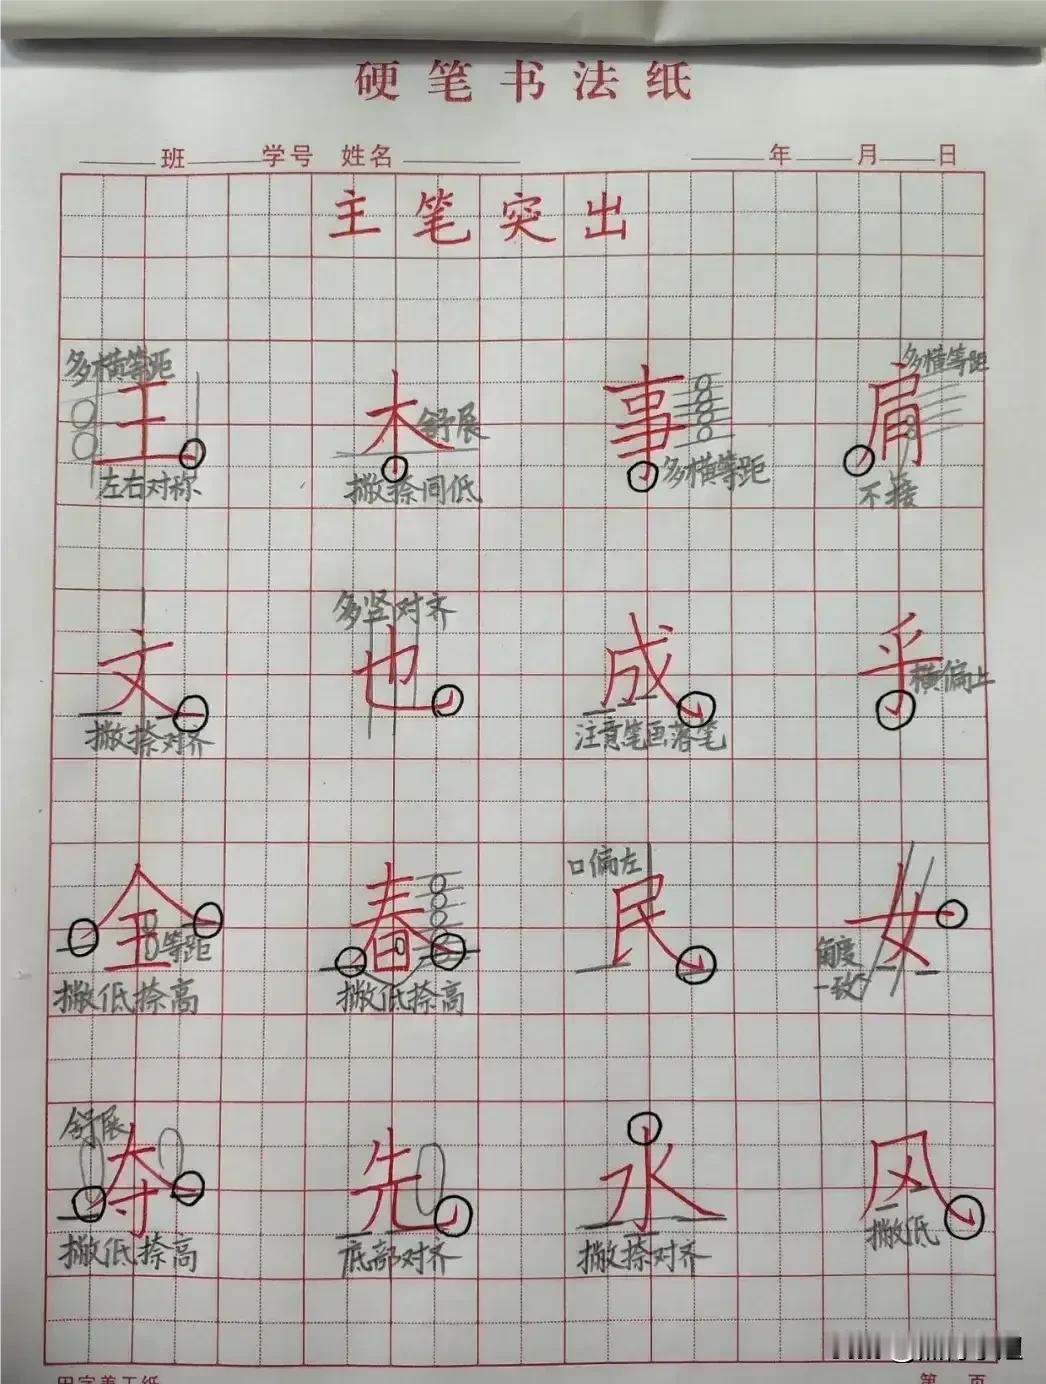 硬笔书法纸
班 学号 姓名 年 月 日
主笔突出
多横等距 多横等距
王 木 舒展 事 肩
左右对称 撇捺同低 多横等距 不接
多竖对齐
文 也 成 乎 横偏上
撇捺对齐 注意笔画落笔
口偏左
全 等距 春 民 女 角度一致
撇低捺高 撇低捺高
舒展
夺 先 水 风
撇低捺高 底部对齐 撇捺对齐 撇低
第 页